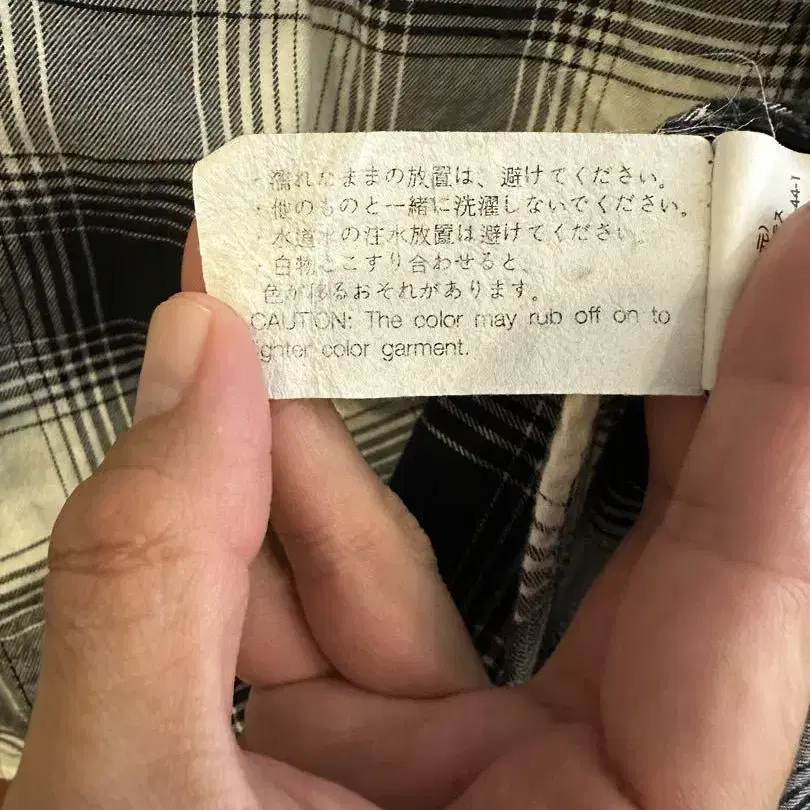 ・濡れたままの放置は、避けてください。
・他のものと一緒に洗濯しないでください。
・水道水の注水放置は避けてください。
・白物とこすり合わせると、
色が移るおそれがあります。
CAUTION: The color may rub off on to
lighter color garment.
44-1